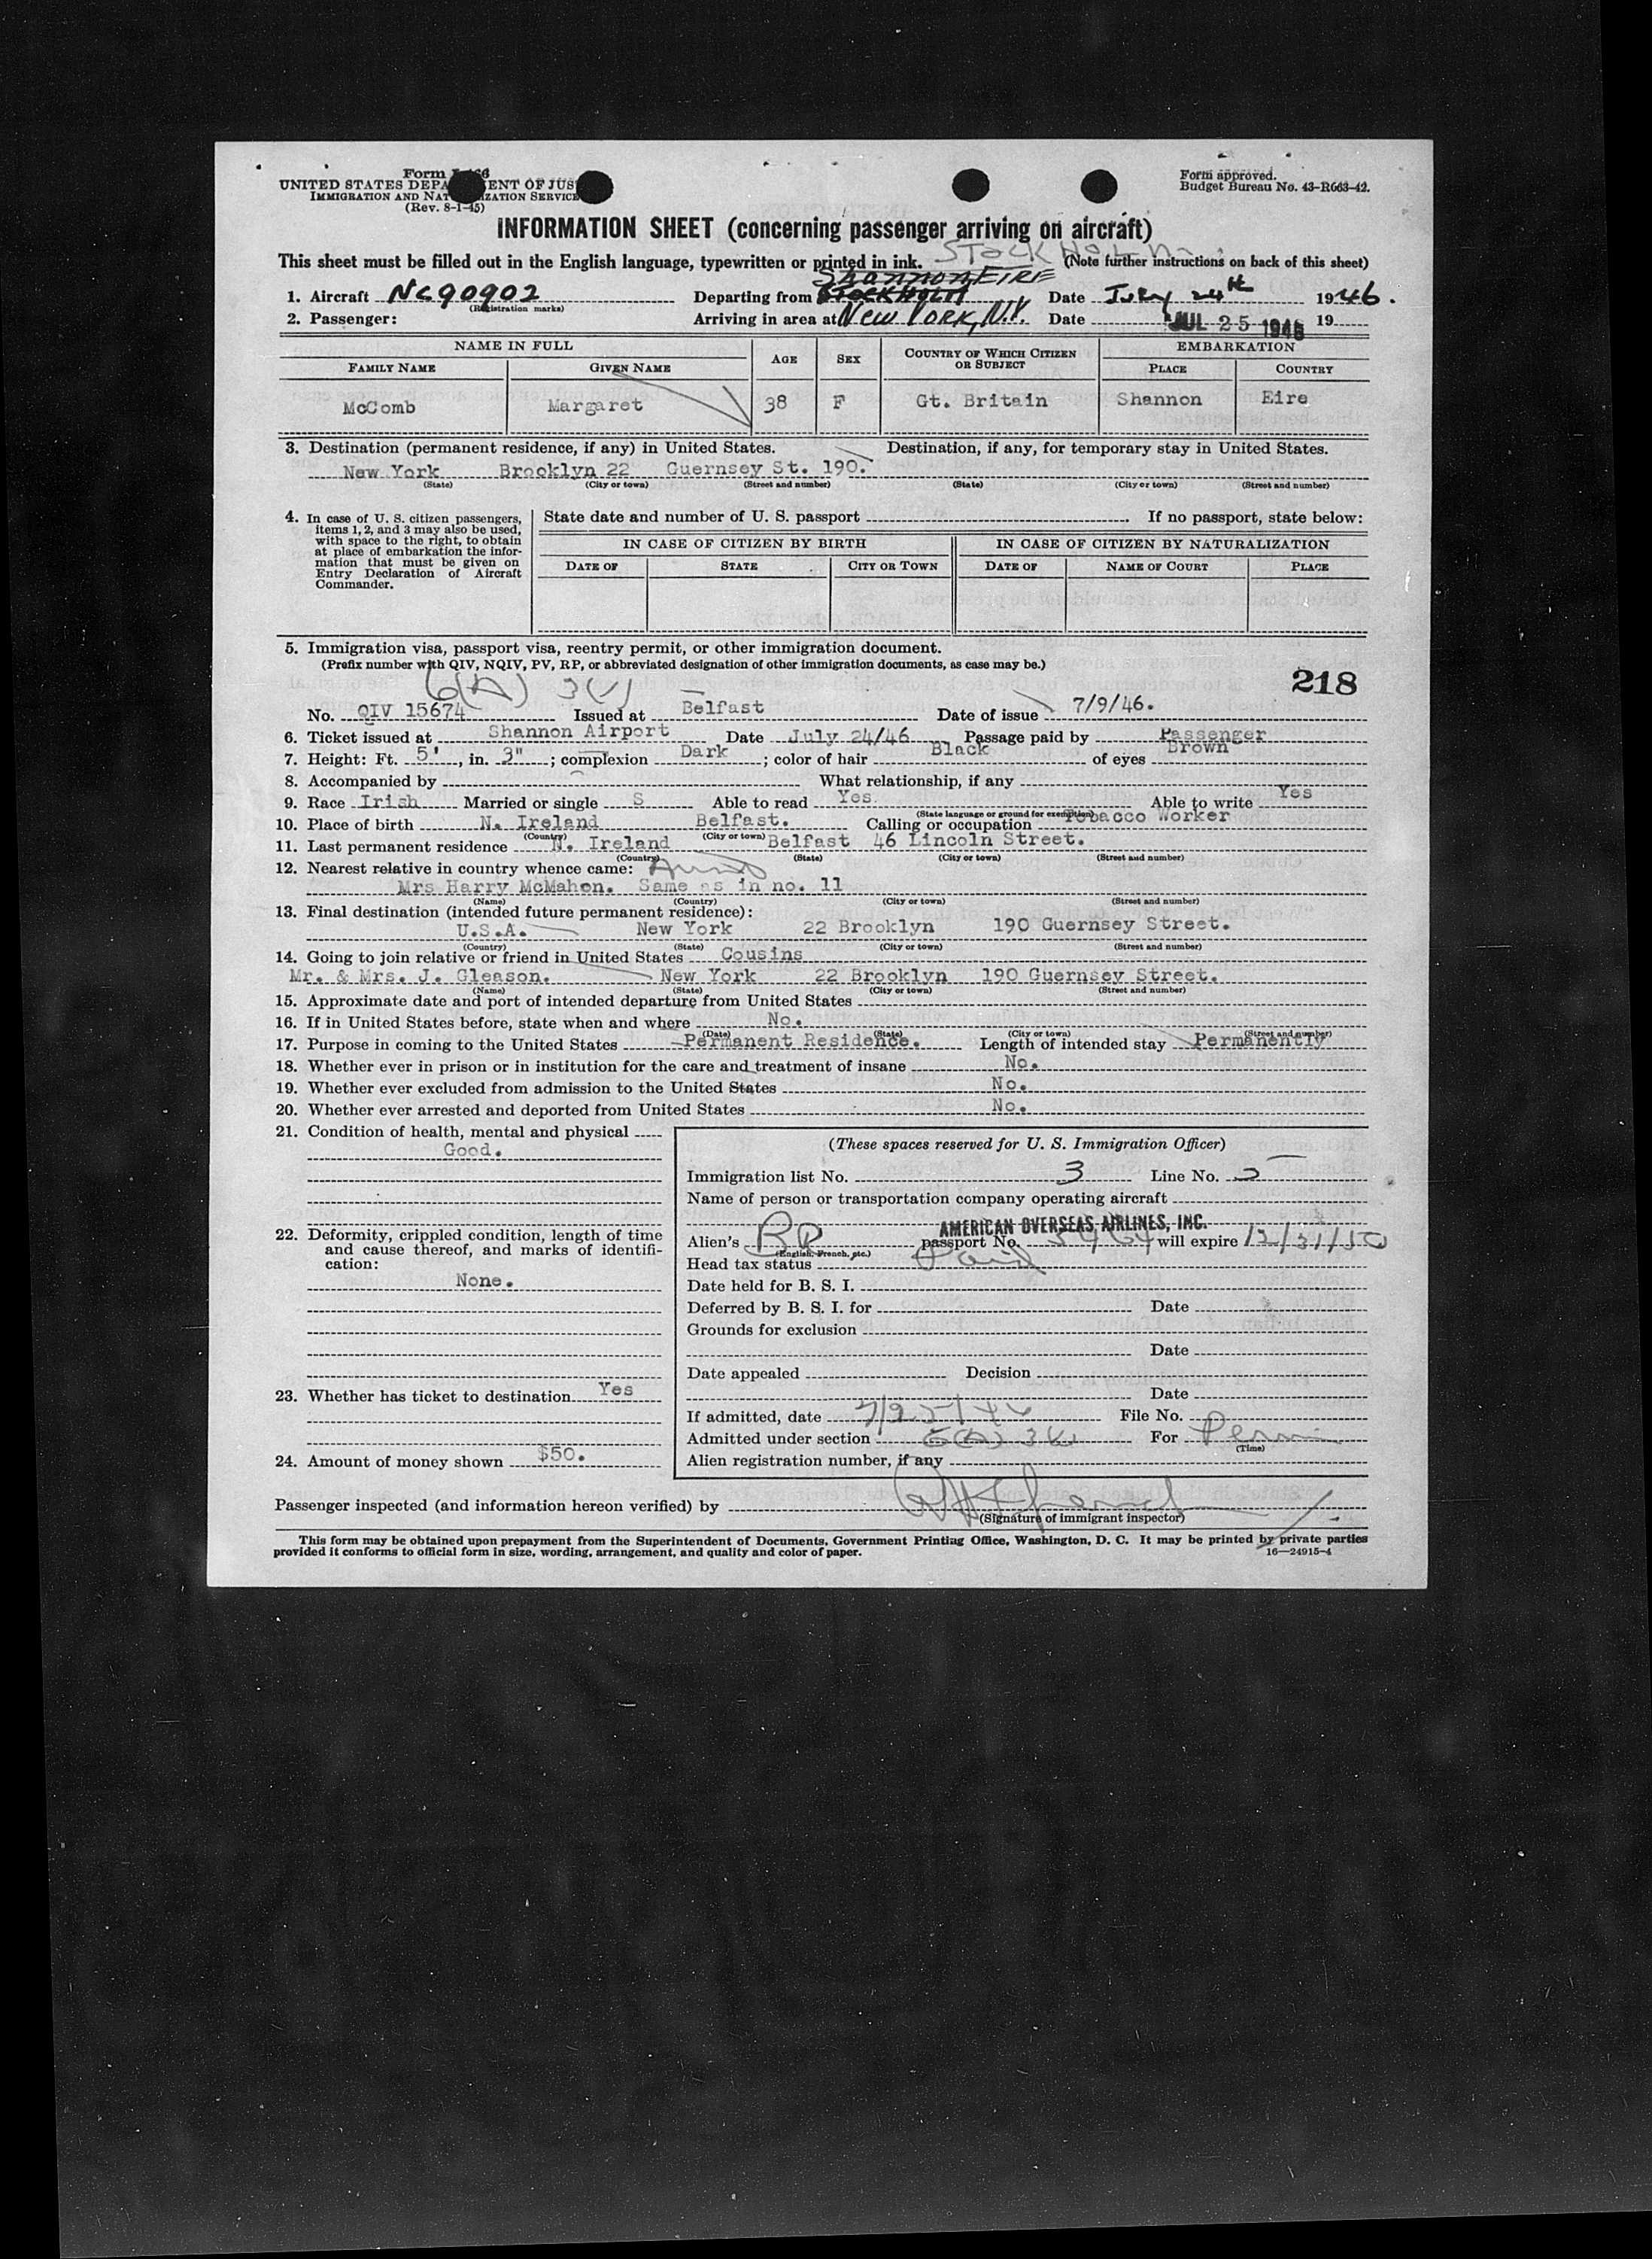 Form I-466
UNITED STATES DEPARTMENT OF JUSTICE
IMMIGRATION AND NATURALIZATION SERVICE
(Rev. 8-1-45)
Form approved.
Budget Bureau No. 43-R663-42.
INFORMATION SHEET (concerning passenger arriving on aircraft)
STOCKHOLM
This sheet must be filled out in the English language, typewritten or printed in ink. (Note further instructions on back of this sheet)
Shannon, EIRE
1. Aircraft NC90902 Departing from STOCKHOLM Date July 24th 1946.
(Registration marks)
2. Passenger: Arriving in area at New York, N.Y. Date JUL 25 1946 19
NAME IN FULL AGE SEX COUNTRY OF WHICH CITIZEN OR SUBJECT EMBARKATION
FAMILY NAME GIVEN NAME PLACE COUNTRY
McComb Margaret 38 F Gt. Britain Shannon Eire
3. Destination (permanent residence, if any) in United States. Destination, if any, for temporary stay in United States.
New York Brooklyn 22 Guernsey St. 190.
(State) (City or town) (Street and number) (State) (City or town) (Street and number)
4. In case of U. S. citizen passengers, items 1, 2, and 3 may also be used, with space to the right, to obtain at place of embarkation the information that must be given on Entry Declaration of Aircraft Commander.
State date and number of U. S. passport . If no passport, state below:
IN CASE OF CITIZEN BY BIRTH IN CASE OF CITIZEN BY NATURALIZATION
DATE OF STATE CITY OR TOWN DATE OF NAME OF COURT PLACE
5. Immigration visa, passport visa, reentry permit, or other immigration document.
(Prefix number with QIV, NQIV, PV, RP, or abbreviated designation of other immigration documents, as case may be.)
218
6(A) 3(V)
No. QIV 15674 Issued at Belfast Date of issue 7/9/46.
6. Ticket issued at Shannon Airport Date July 24/46 Passage paid by Passenger
7. Height: Ft. 5', in. 3"; complexion Dark; color of hair Black of eyes Brown
8. Accompanied by What relationship, if any
9. Race Irish Married or single S Able to read Yes. Able to write Yes
(State language or ground for exemption)
10. Place of birth N. Ireland Belfast. Calling or occupation Tobacco Worker
(Country) (City or town)
11. Last permanent residence N. Ireland Belfast 46 Lincoln Street.
(Country) (State) (City or town) (Street and number)
12. Nearest relative in country whence came: Aunt
Mrs Harry McMahon. Same as in no. 11
(Name) (Country) (City or town) (Street and number)
13. Final destination (intended future permanent residence):
U.S.A. New York 22 Brooklyn 190 Guernsey Street.
(Country) (State) (City or town) (Street and number)
14. Going to join relative or friend in United States Cousins
Mr. & Mrs. J. Gleason. New York 22 Brooklyn 190 Guernsey Street.
(Name) (State) (City or town) (Street and number)
15. Approximate date and port of intended departure from United States
16. If in United States before, state when and where No.
(Date) (State) (City or town) (Street and number)
17. Purpose in coming to the United States Permanent Residence. Length of intended stay Permanently
18. Whether ever in prison or in institution for the care and treatment of insane No.
19. Whether ever excluded from admission to the United States No.
20. Whether ever arrested and deported from United States No.
21. Condition of health, mental and physical
Good.
22. Deformity, crippled condition, length of time and cause thereof, and marks of identification:
None.
23. Whether has ticket to destination Yes
24. Amount of money shown $50.
(These spaces reserved for U. S. Immigration Officer)
Immigration list No. 3 Line No. 5
Name of person or transportation company operating aircraft
AMERICAN OVERSEAS AIRLINES, INC.
Alien's Br passport No. will expire 12/31/50
(English, French, etc.)
Head tax status Paid
Date held for B. S. I.
Deferred by B. S. I. for Date
Grounds for exclusion
Date
Date appealed Decision
Date
If admitted, date 7/25/46 File No.
Admitted under section 6(A) 3(V) For Perm
(Time)
Alien registration number, if any
Passenger inspected (and information hereon verified) by
(Signature of immigrant inspector)
This form may be obtained upon prepayment from the Superintendent of Documents, Government Printing Office, Washington, D. C. It may be printed by private parties
provided it conforms to official form in size, wording, arrangement, and quality and color of paper. 16—24915-4